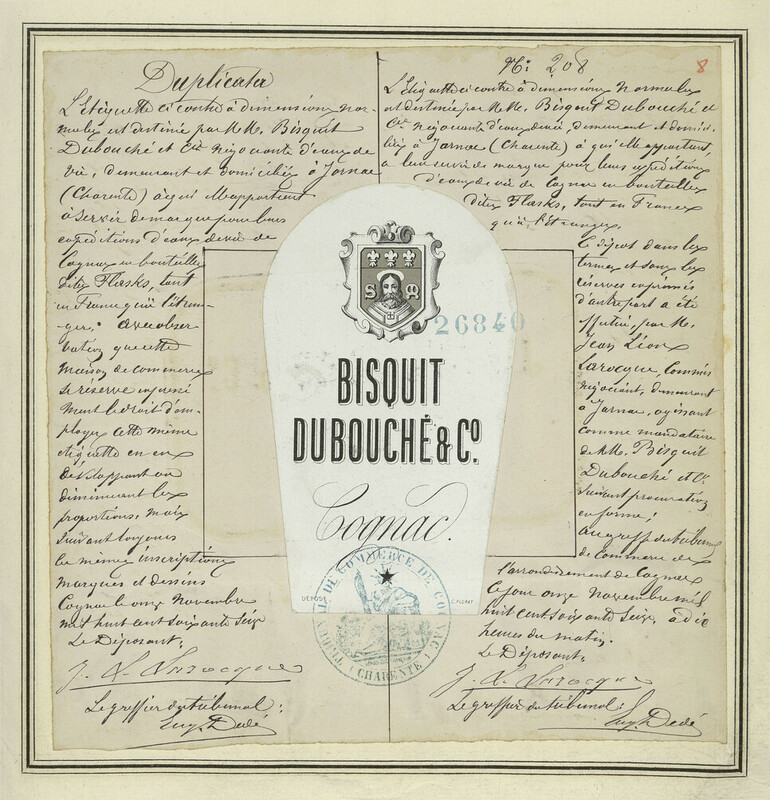 Duplicata
L'Etiquette ci contre à dimensions nor-
males est destinée par MM. Bisquit
Dubouché et Cie négociants d'eaux de
vie, demeurant et domiciliés à Jarnac
(Charente) à qui elle appartient
à servir de marque pour leurs
expéditions d'eaux de vie de
Cognac en bouteilles
dites Flasks, tant
en France qu'à l'étran-
ger; avec obser
vation que cette
maison de commerce
se réserve expressé
ment le droit d'em-
ployer cette même
étiquette en en
développant ou
diminuant les
proportions, mais
suivant toujours
les mêmes inscriptions
marques et dessins
Cognac le onze Novembre
mil huit cent soixante seize
Le Déposant:
J. L. Larocque
Le greffier du tribunal:
Eug. Dedé
No: 208
8
L'Etiquette ci contre à dimensions normales
est destinée par MM. Bisquit Dubouché et
Cie négociants d'eaux de vie, demeurant et domici-
liés à Jarnac (Charente) à qui elle appartient,
à leur servir de marque pour leurs expéditions
d'eaux de vie de Cognac en bouteilles
dites Flasks, tant en France
qu'à l'Etranger.
Le dépôt dans les
termes et sous les
réserves exprimés
d'autre part a été
effectué par M.
Jean Léon
Larocque, Commis
négociant, demeurant
à Jarnac, agissant
comme mandataire
de MM. Bisquit
Dubouché et Cie
suivant procuration
en forme;
au greffe du tribunal
de Commerce de
l'arrondissement de Cognac
ce jour onze Novembre mil
huit cent soixante seize, à dix
heures du matin.
Le Déposant:
J. L. Larocque
Le greffier du tribunal:
Eug. Dedé
S M
26840
BISQUIT
DUBOUCHÉ & Co.
Cognac.
DÉPOSÉ
C. FLORAT
TRIBUNAL DE COMMERCE DE COGNAC
(CHARENTE)